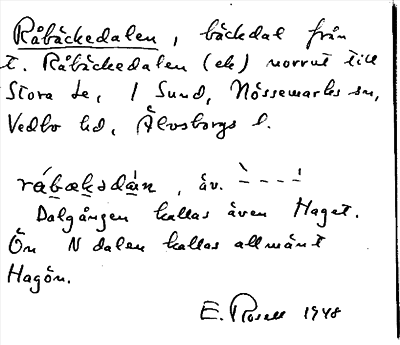 Råbäckedalen, bäckdal från
t. Råbäckedalen (ek) norrut till
Stora Le, 1 Sund, Nössemarks sn,
Vedbo hd, Älvsborgs l.
råbæksdán, äv.
Dalgången kallas även Haget.
Ön N dalen kallas allmänt
Hagön.
E. Rosell 1948